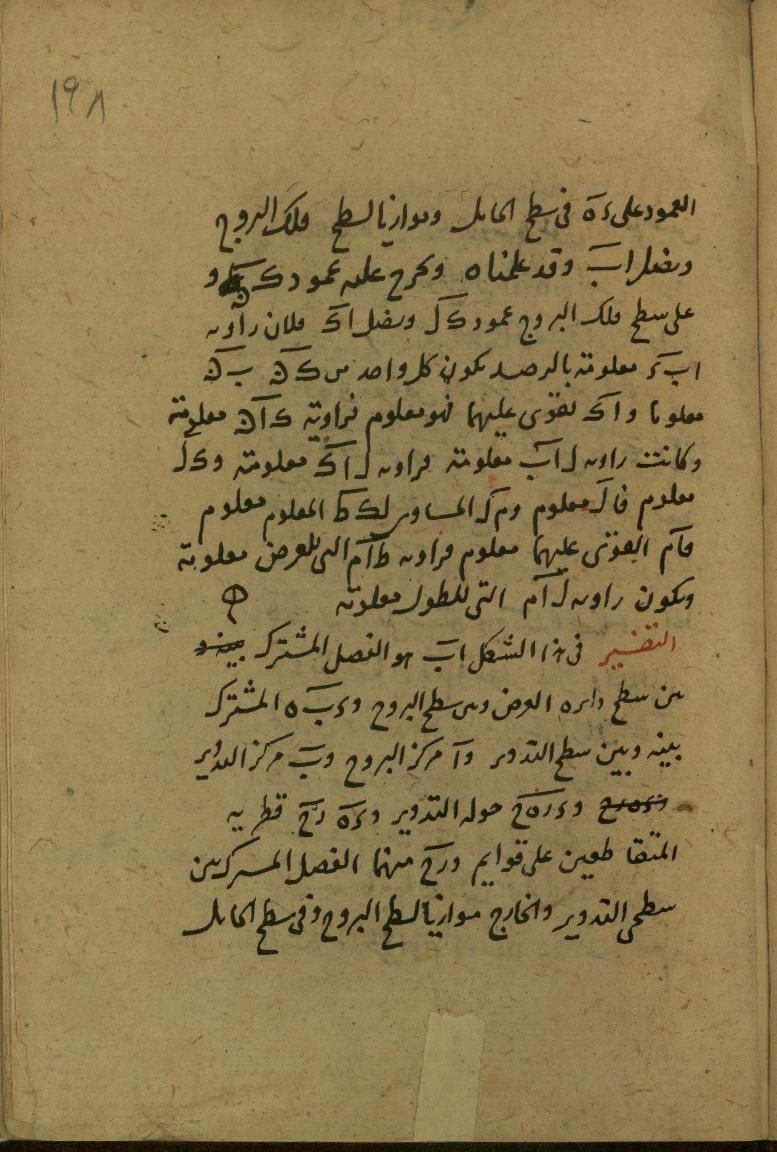 ١٩٨
العمود على ءه فى سطح المايل وموازيا لسطح فلك البروج
ونصل اب وقد علمناه ونخرج عليه عمود ك و
على سطح فلك البروج عمود ك ل ونصل اك فلان زاويه
اب ء معلومة بالرصد يكون كل واحد من ك ن ب ن
معلوما و اك يقوى عليهما فهو معلوم فزاوية ك ا ن معلومة
وكانت زاويه ل اب معلومة فزاويه ل اك معلومة و ك ل
معلوم فا ل معلوم و م ل المساوى ل ك ط المعلوم معلوم
فام القوى عليهما معلوم فزاويه ط ام التى للعرض معلومة
ويكون زاويه ل ام التى للطول معلومة
التفسير فى هذا الشكل اب هو الفصل المشترك
بين سطح دايره العرض وبين سطح البروج و ء ب ه المشترك
بينه وبين سطح التدوير و ا مركز البروج و ب مركز التدوير
و ء ر ه ح حوله التدوير و ء ه ر ح قطريه
المتقاطعين على قوايم و ر ح منهما الفصل المشترك بين
سطحى التدوير والخارج موازيا لسطح البروج وفى سطح المايل